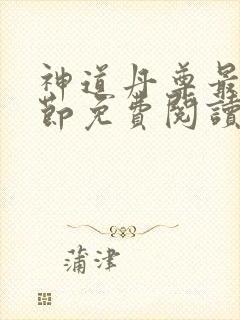 神道丹尊最
節免費閱讀
蒲津